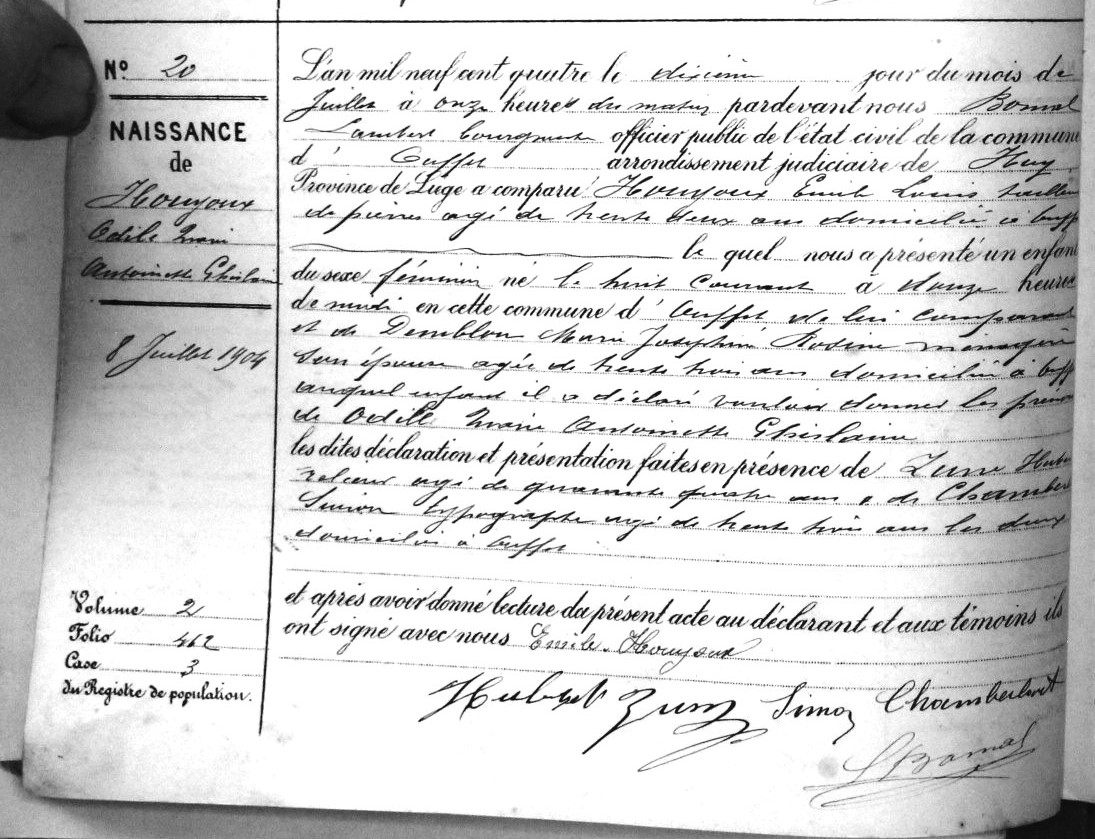 N° 20
NAISSANCE
de
Houyoux
Odile Marie
Antoinette Ghislain
8 Juillet 1904
Volume 2
Folio 462
Case 3
du Registre de population.
L'an mil neuf cent quatre le dixième jour du mois de
Juillet à onze heures du matin pardevant nous Bomal
Lambert bourgmestre officier public de l'état civil de la commune
d' Ouffet arrondissement judiciaire de Huy
Province de Liège a comparu Houyoux Emile Louis tailleur
de pierres agé de trente deux ans domicilié à Ouff
le quel nous a présenté un enfant
du sexe féminin né le huit courant à douze heures
de midi en cette commune d' Ouffet de lui comparant
et de Demblon Marie Joséphine Rosine ménagère
son épouse agée de trente trois ans domiciliée à Ouff
auquel enfant il a déclaré vouloir donner les prénoms
de Odile Marie Antoinette Ghislaine
les dites déclaration et présentation faites en présence de Zune Hubert
agé de quarante quatre ans & de Chamberl
Simon typographe agé de trente trois ans les deux
domiciliés à Ouffet
et après avoir donné lecture du présent acte au déclarant et aux témoins ils
ont signé avec nous Emile Houyoux
Hubert Zune Simon Chamberland
L Bomal